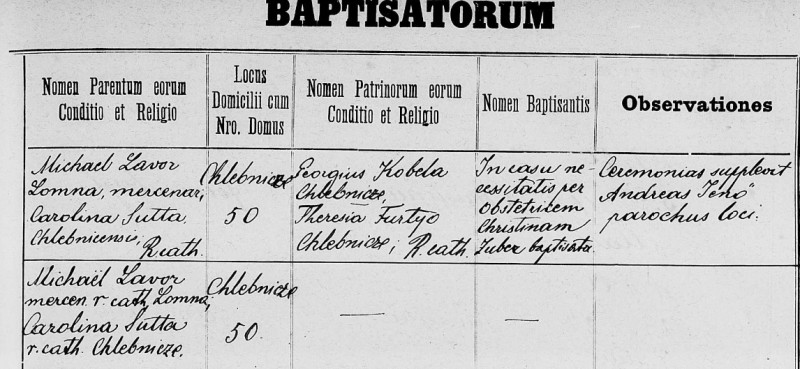 BAPTISATORUM
Nomen Parentum eorum
Conditio et Religio
Locus
Domicilii cum
Nro. Domus
Nomen Patrinorum eorum
Conditio et Religio
Nomen Baptisantis
Observationes
Michael Lavor
Lomna, mercenar;
Carolina Sutta
Chlebnicensis;
R. cath.
Chlebnicze
50
Georgius Kobela
Chlebnicze,
Theresia Furtyo
Chlebnicze; R. cath.
In casu ne-
cessitatis per
obstetricem
Christinam
Zuber baptisata.
Ceremonias supplevit
Andreas Jenő
parochus loci.
Michaël Lavor
mercen. r. cath, Lomna;
Carolina Sutta
r. cath. Chlebnicze.
Chlebnicze
50.